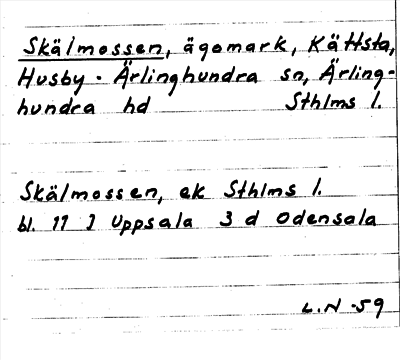 Skälmossen, ägomark, Kättsta,
Husby-Ärlinghundra sn, Ärling-
hundra hd Sthlms l.
Skälmossen, ek Sthlms l.
bl. 11 I Uppsala 3 d Odensala
L.N -59